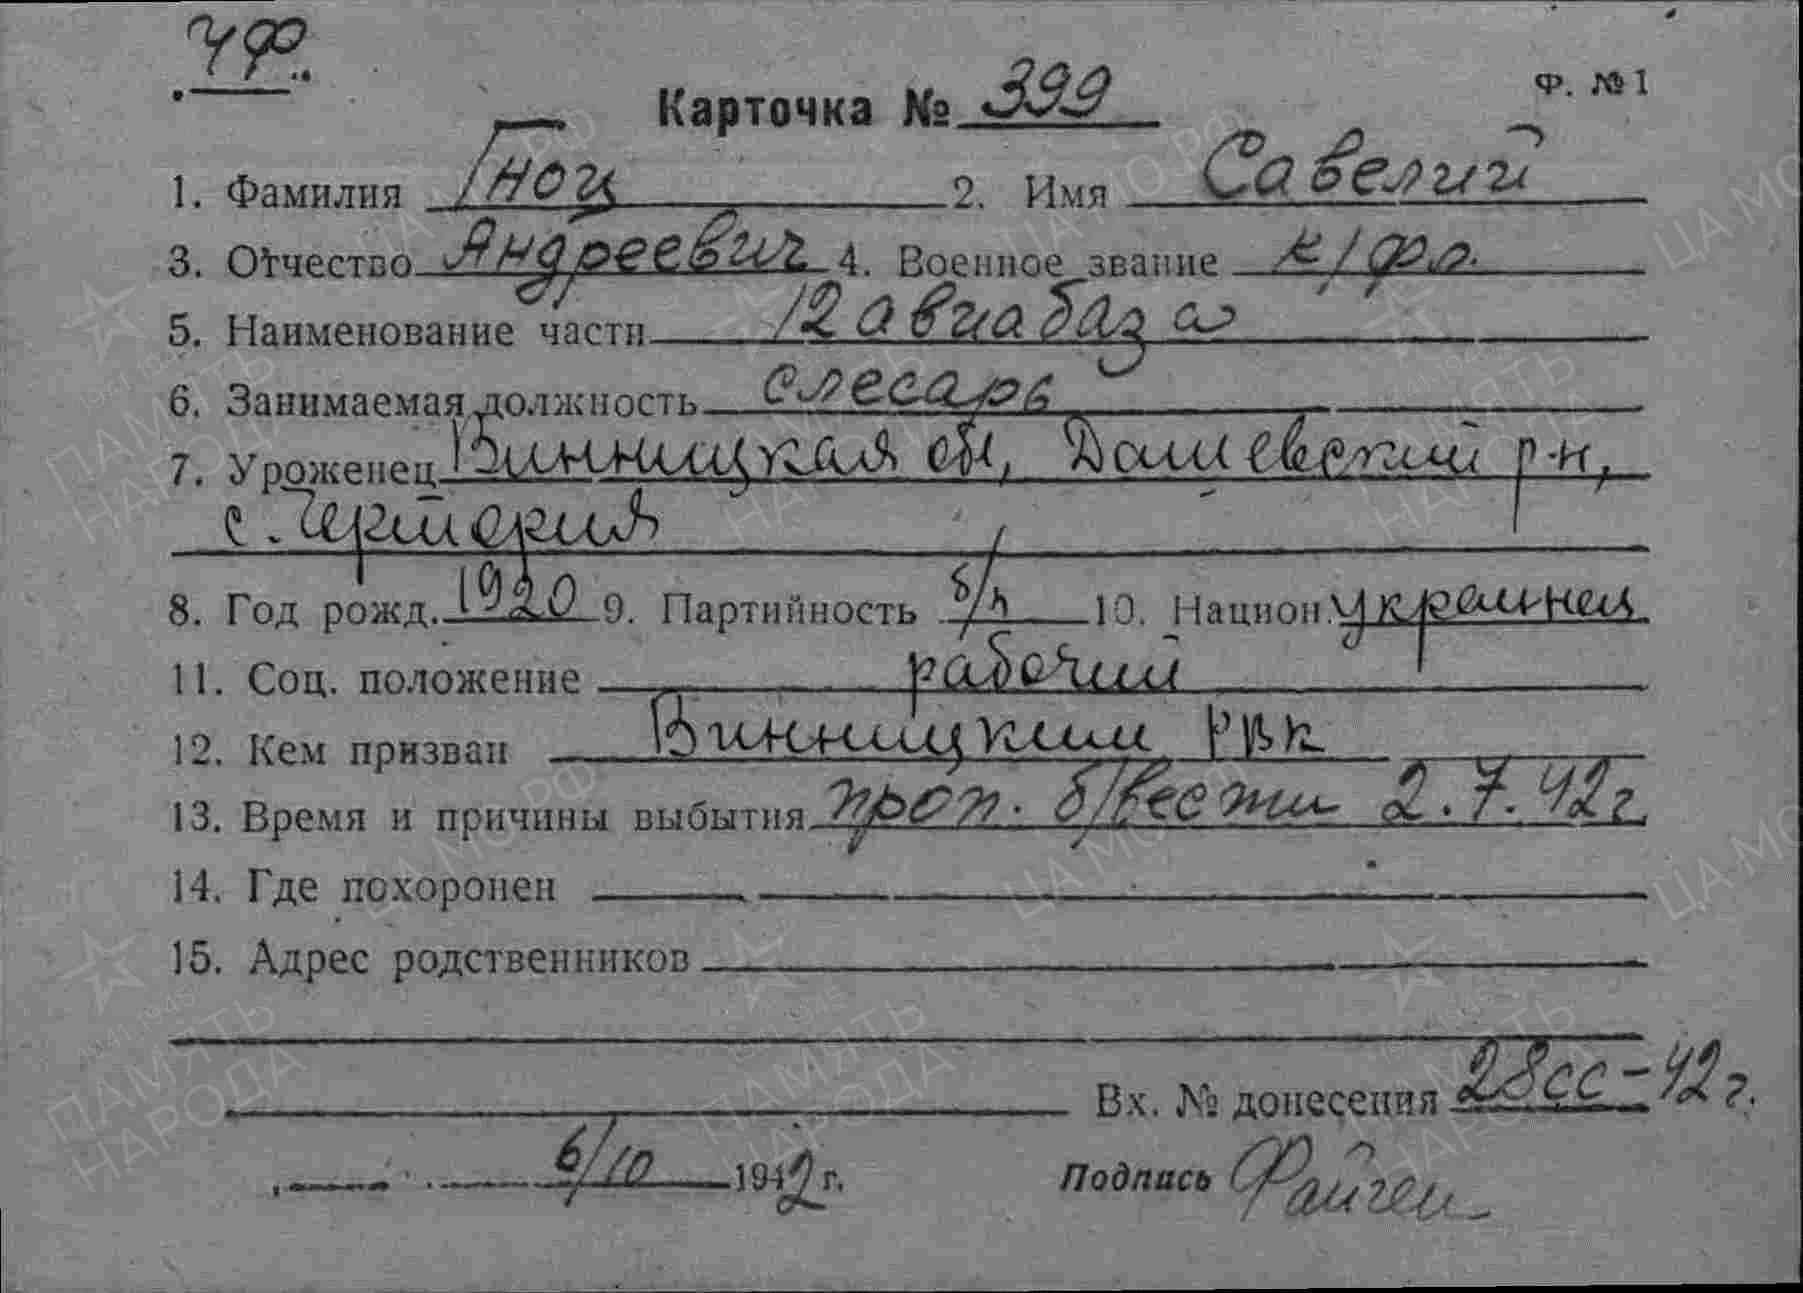 ЧФ.
Карточка № 399
Ф. №1
1. Фамилия Гноц 2. Имя Савелий
3. Отчество Андреевич 4. Военное звание к/фл.
5. Наименование части 12 авиабаза
6. Занимаемая должность слесарь
7. Уроженец Винницкая обл, Дашевский р-н,
с. Чертория
8. Год рожд. 1920 9. Партийность б/п 10. Национ. украинец
11. Соц. положение рабочий
12. Кем призван Винницким РВК
13. Время и причины выбытия проп. б/вести 2.7.42г.
14. Где похоронен
15. Адрес родственников
Вх. № донесения 28сс-42г.
6/10 1942 г. Подпись
ПАМЯТЬ НАРОДА
1941-1945
ЦА МО РФ